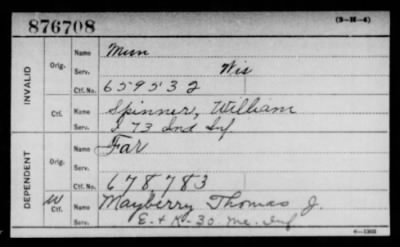 876708
(3-H-4)
INVALID
Orig.
Name
Serv. Wis
Ctf. No. 659532
Ctf.
Name Spinner, William
Serv. I 73 Ind Inf
DEPENDENT
Orig.
Name Far
Serv.
Ctf. No. 678783
W Ctf.
Name Mayberry Thomas J.
Serv. E + K - 30. Me. Inf